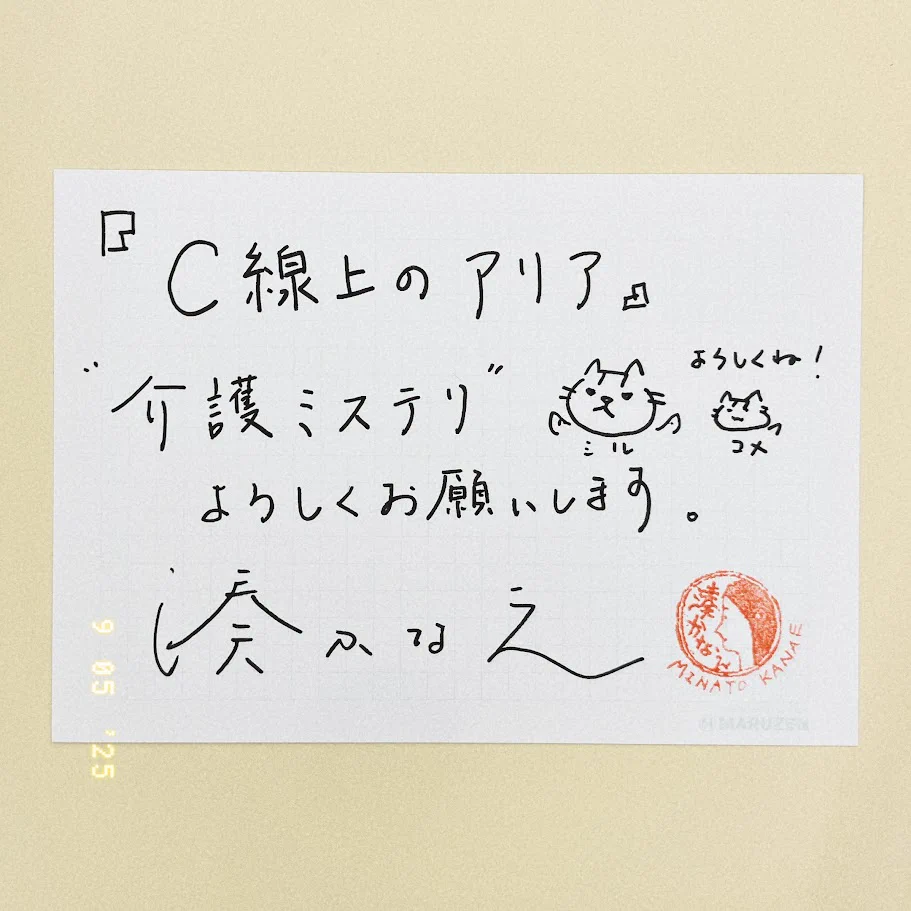 『C線上のアリア』
"介護ミステリ"
よろしくね！
ミル
コメ
よろしくお願いします。
湊かなえ
湊かなえ
MINATO KANAE
MARUZEN
9 05 '25